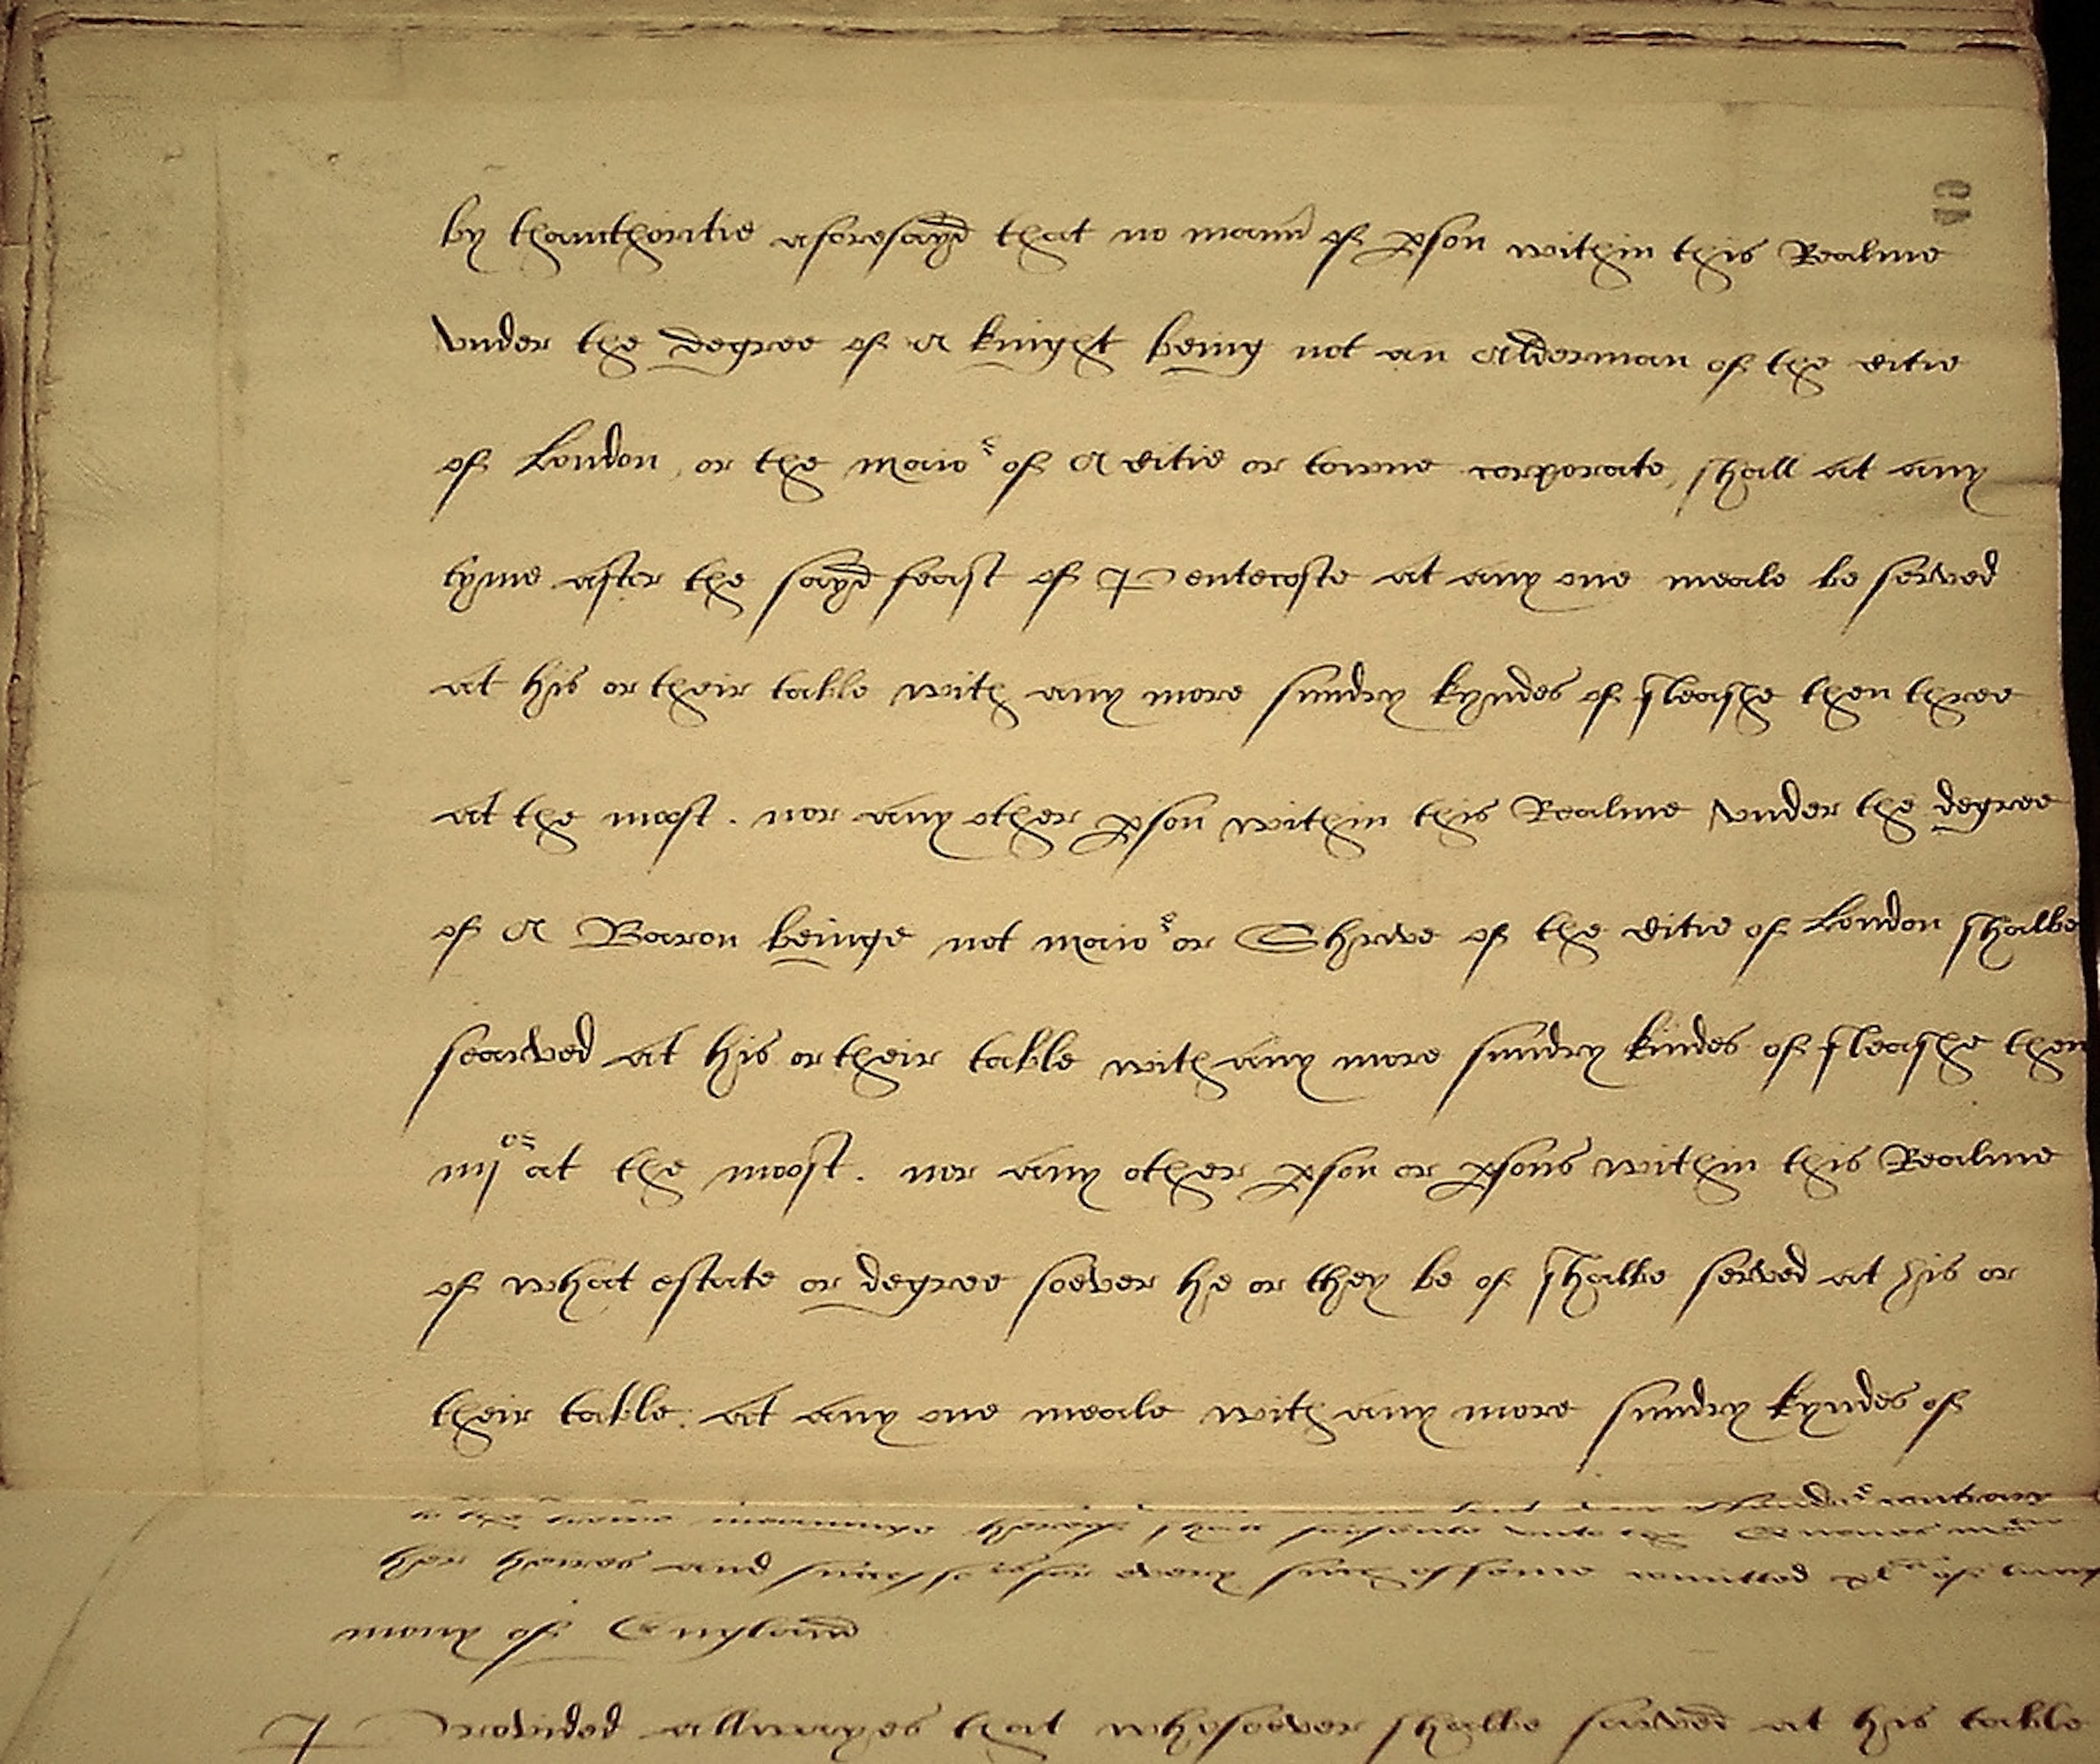 by thauthoritie aforesayd that no mann of pson within this Realme
vnder the degree of A knight being not an Alderman of the citie
of London, or the maior of A citie or towne corporate, shall at any
tyme after the sayd feast of Pentecoste at any one meale be served
at his or their table with any more sundry kyndes of fleashe then three
at the moost. nor any other pson within this Realme vnder the degree
of A Baron beinge not maior or Shrive of the citie of London shalbe
searved at his or their table with any more sundry kindes of fleashe then
iiij or at the moost. nor any other pson or psons within this Realme
of what estate or degree soever he or they be of shalbe served at his or
their table. at any one meale with any more sundry kyndes of
contrary
to the meaninge hereof shall vnto the Quenes
her heires and successors for every such offence comitted of
mony of England
Provided allwayes that whosoever shalbe served at his table